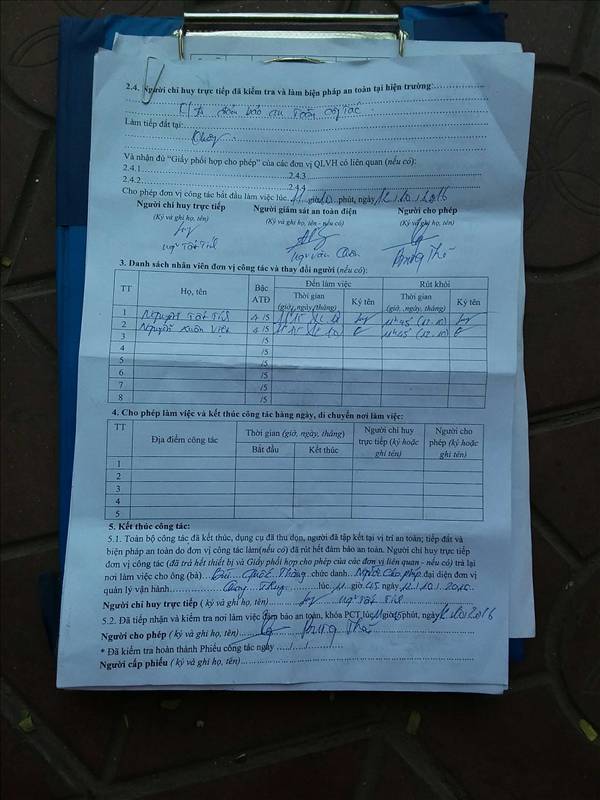 2.4. Người chỉ huy trực tiếp đã kiểm tra và làm biện pháp an toàn tại hiện trường:
đảm bảo an toàn công tác
Làm tiếp đất tại:
Không
Và nhận đủ “Giấy phối hợp cho phép” của các đơn vị QLVH có liên quan (nếu có):
2.4.1 2.4.3
2.4.2 2.4.4
Cho phép đơn vị công tác bắt đầu làm việc lúc 11 giờ 10 phút, ngày 12.10.2016
Người chỉ huy trực tiếp Người giám sát an toàn điện Người cho phép
(Ký và ghi họ, tên) (Ký và ghi họ, tên - nếu có) (Ký và ghi họ, tên)
3. Danh sách nhân viên đơn vị công tác và thay đổi người (nếu có):
TT Họ, tên Bậc ATĐ Đến làm việc Rút khỏi
Thời gian (giờ, ngày, tháng) Ký tên Thời gian (giờ, ngày, tháng) Ký tên
1 Nguyễn Tất 4/5 11h45 (12.10)
2 Nguyễn Xuân 4/5 11h45 (12.10)
3 /5
4 /5
5 /5
6 /5
7 /5
8 /5
4. Cho phép làm việc và kết thúc công tác hàng ngày, di chuyển nơi làm việc:
TT Địa điểm công tác Thời gian (giờ, ngày, tháng) Người chỉ huy trực tiếp (ký hoặc ghi tên) Người cho phép (ký hoặc ghi tên)
Bắt đầu Kết thúc
1
2
3
4
5
5. Kết thúc công tác:
5.1. Toàn bộ công tác đã kết thúc, dụng cụ đã thu dọn, người đã tập kết tại vị trí an toàn; tiếp đất và
biện pháp an toàn do đơn vị công tác làm(nếu có) đã rút hết đảm bảo an toàn. Người chỉ huy trực tiếp
đơn vị công tác (đã trả hết thiết bị và Giấy phối hợp cho phép của các đơn vị liên quan - nếu có) trả lại
nơi làm việc cho ông (bà) Bùi Quốc Thắng chức danh Người cho phép đại diện đơn vị
quản lý vận hành lúc 11 giờ 45 ngày 12.10.2016
Người chỉ huy trực tiếp ( ký và ghi họ, tên)
5.2. Đã tiếp nhận và kiểm tra nơi làm việc đảm bảo an toàn, khóa PCT lúc 11 giờ 45 phút, ngày 12.10.2016
Người cho phép ( ký và ghi họ, tên)
* Đã kiểm tra hoàn thành Phiếu công tác ngày ..../..../....
Người cấp phiếu ( ký và ghi họ, tên)